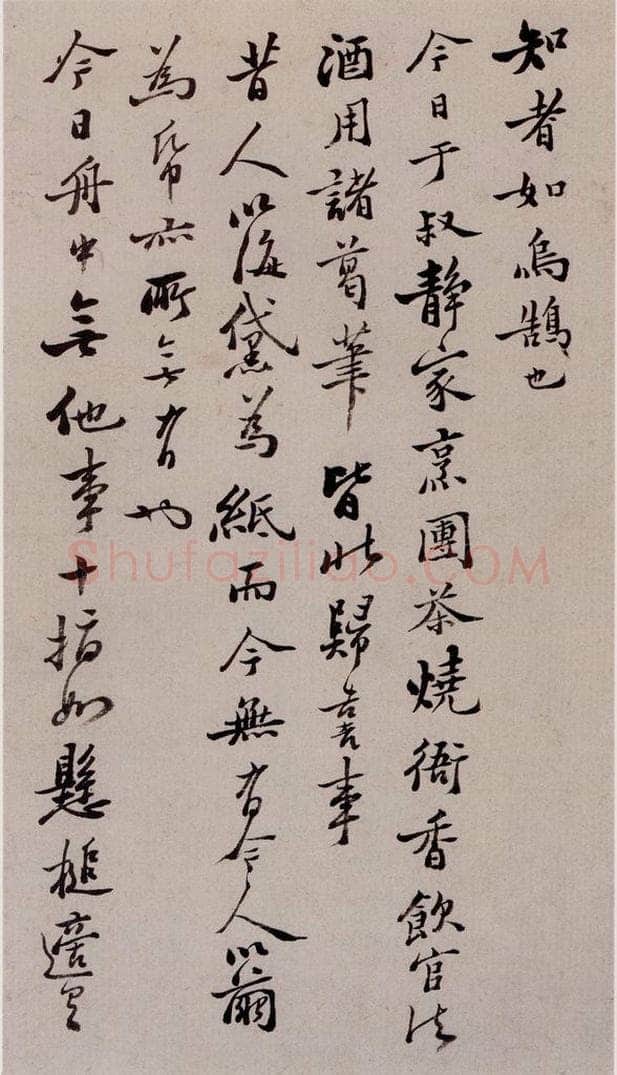 知者如烏鵲也
今日于叔静家烹團茶燒衙香飲官法
酒用諸葛筆皆北歸喜事
昔人以海黛為紙而今無有今人以
為帋亦所無有也
今日舟中無他事十指如懸槌適有
Shufaziliao.COM